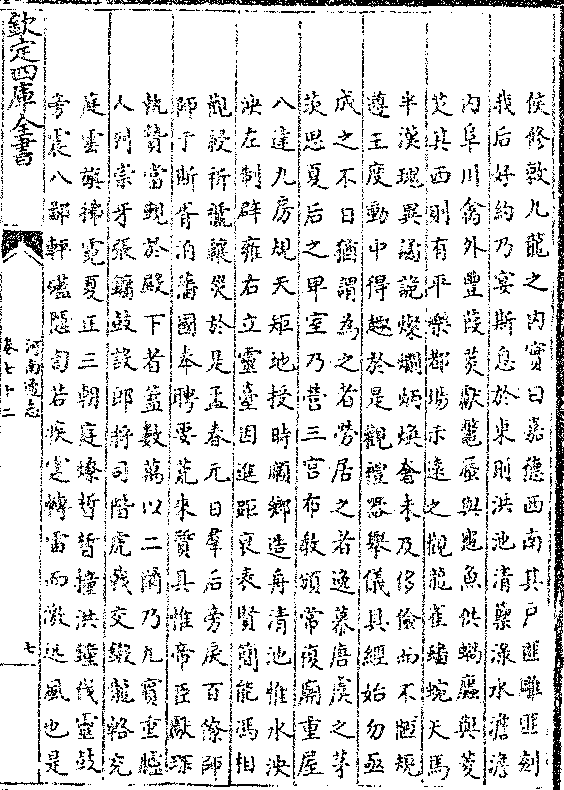 欽定四庫全書
侯修敕九龍之内實曰嘉德西南其戶匪雕匪刻
我后好約乃宴斯息於東則洪池清蘌淥水澹澹
内阜川禽外豐葭菼獻鼈蜃與龜魚供蝸蠯與菱
芡其西則有平樂都場示遠之觀龍雀蟠蜿天馬
半漢瑰異譎詭燦爛炳煥奢未及侈儉而不陋規
遵王度動中得趣於是觀禮器舉儀具經始勿亟
成之不日猶謂為之者勞居之者逸慕唐虞之茅
茨思夏后之卑室乃營三宫布教頒常復廟重屋
八達九房規天矩地授時順鄉造舟清池惟水泱
泱左制辟雍右立靈臺因進距衰表賢簡能馮相
觀祲祈禠禳災於是孟春元日羣后旁戾百僚師
師于斯胥洎藩國奉聘要荒來質具惟帝臣獻琛
執贄當覲於殿下者蓋數萬以二爾乃九賓重臚
人列崇牙張鏞鼓設郎將司階虎戟交鎩龍輅充
庭雲旗拂霓夏正三朝庭燎晢晢撞洪鐘伐靈鼓
旁震八鄙軯磕隱訇若疾霆轉雷而激迅風也是
河南通志
卷七十二
七